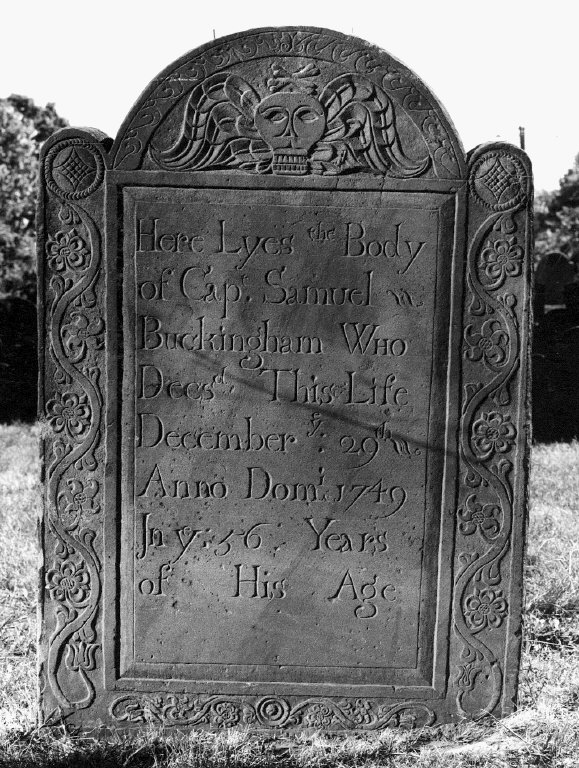 Here Lyes the Body
of Capt. Samuel
Buckingham Who
Decesd. This Life
December ye. 29th
Anno Domi. 1749
Jn ye. 56. Years
of His Age